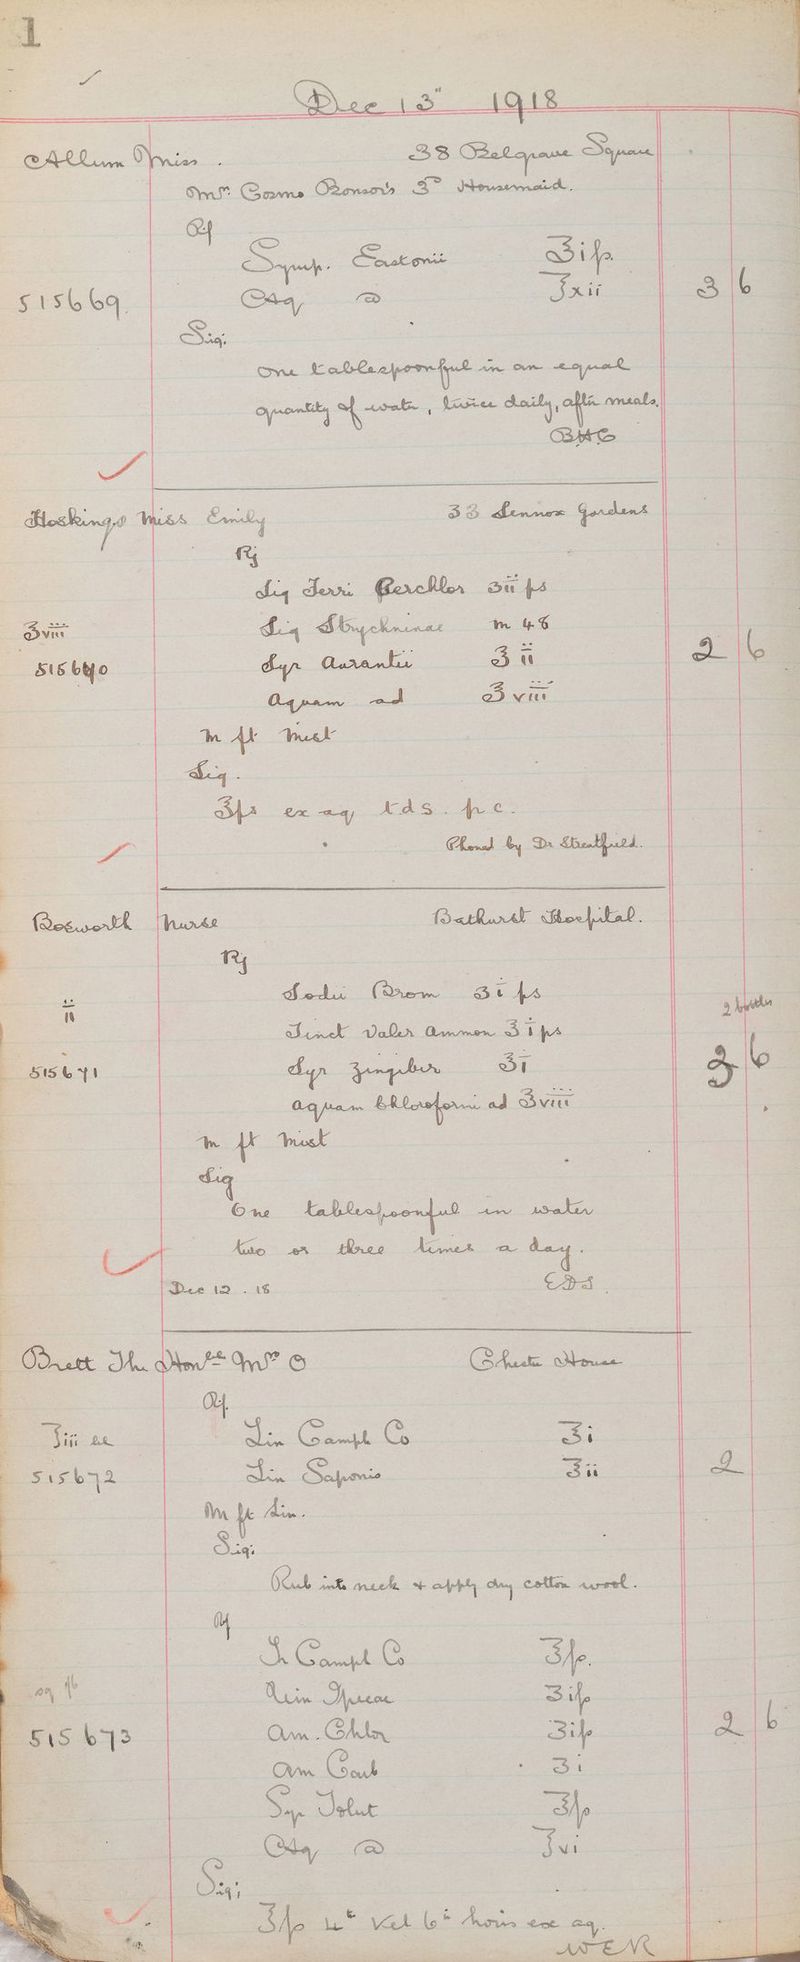 1
Dec 13" 1918
Allum Miss. 38 Belgrave Square
Mrs. Cosmo Bonsor's 3rd Housemaid.
Rx
Syrup. Eastonii ʒiſs.
515669. Aq @ ℥xii 3 6
Sig:
one tablespoonful in an equal
quantity of water, twice daily, after meals.
BHC
Hoskings Miss Emily 33 Lennox Gardens
Rx
Liq Ferri Perchlor ʒiiſs
℥viii Liq Strychninae m 48
515670 Syr Aurantii ℥ii 2 6
Aquam ad ℥viii
M ft Mist
Sig.
℥ſs ex aq t.d.s. p c.
Phoned by Dr Streatfield.
Bosworth Nurse Bathurst Hospital.
Rx
Sodii Brom ʒiſs
ii 2 bottles
Tinct Valer Ammon ʒiſs
515671 Syr Zingiber ʒi 3 6
Aquam Chloroformi ad ℥viii
M ft Mist
Sig
One tablespoonful in water
two or three times a day.
Dec 12. 18 EDS.
Brett The Honble Mrs O Chester House
Rx
℥iii Lin Camph Co ℥i
515672 Lin Saponis ℥ii 2
M ft Lin.
Sig:
Rub into neck & apply dry cotton wool.
Rx
Tr Camph Co ℥ſs.
Vin Ipecac ʒiſs
515673 Am. Chlor ʒiſs 2 6
Am Carb ʒi
Syr Tolut ℥ſs
Aq @ ℥vi
Sig:
℥ſs 4tis vel 6tis horis ex aq.
WER